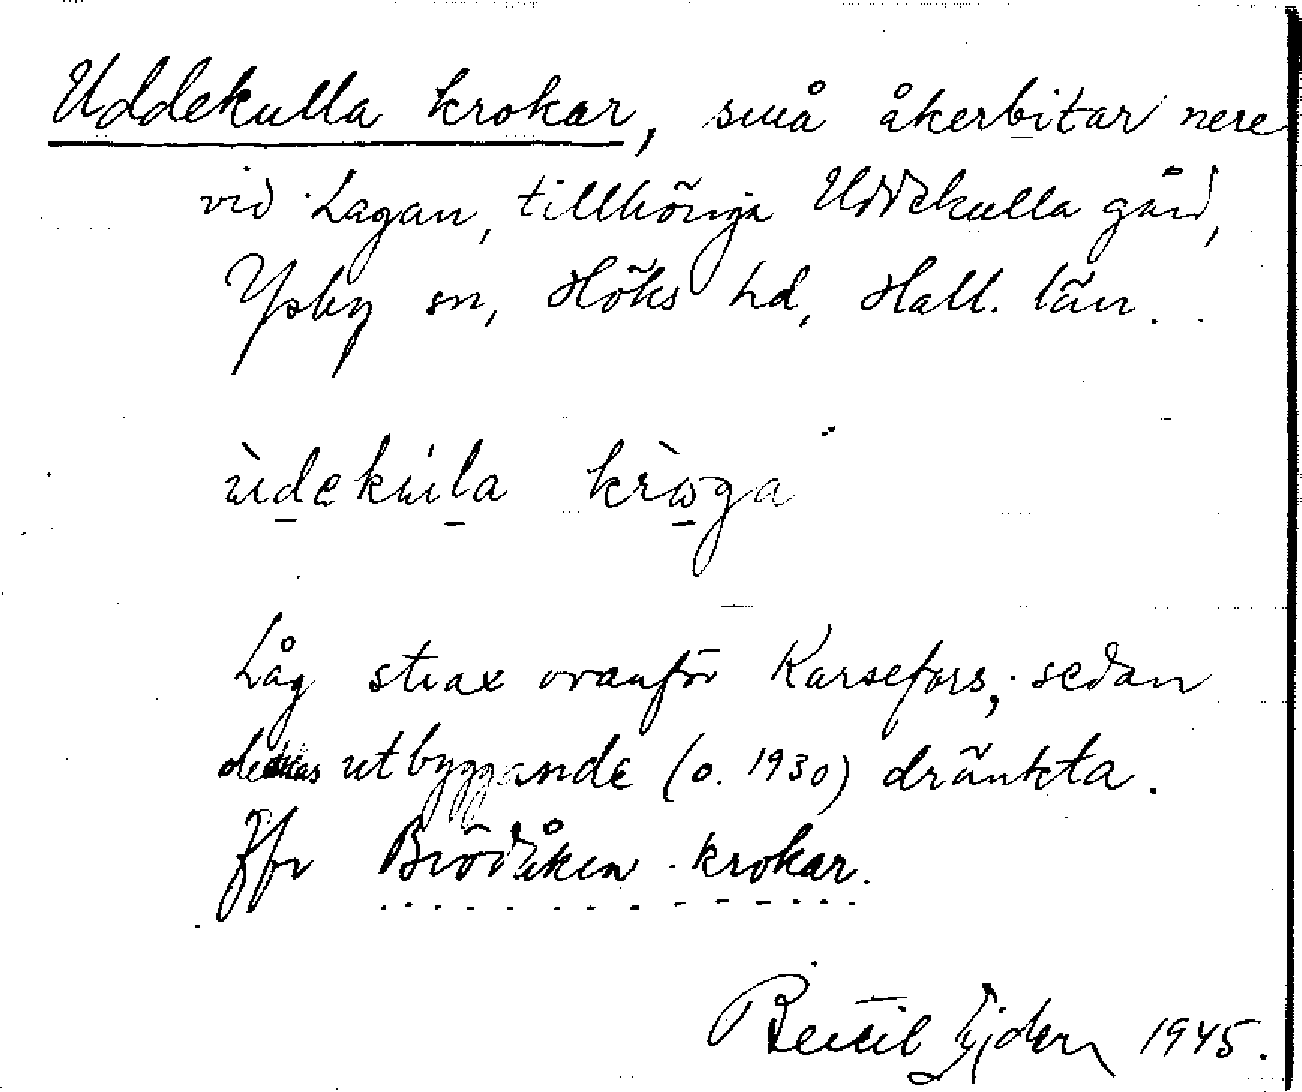 Uddekulla krokar, små åkerbitar nere
vid Lagan, tillhöriga Uddekulla gård,
Ysby sn, Höks hd, Hall. län.
ùdekúla krὼga
Låg strax ovanför Karsefors, sedan
dettas utbyggande (o. 1930) dränkta.
Jfr Brödåken-krokar.
Bertil Ejder 1945.